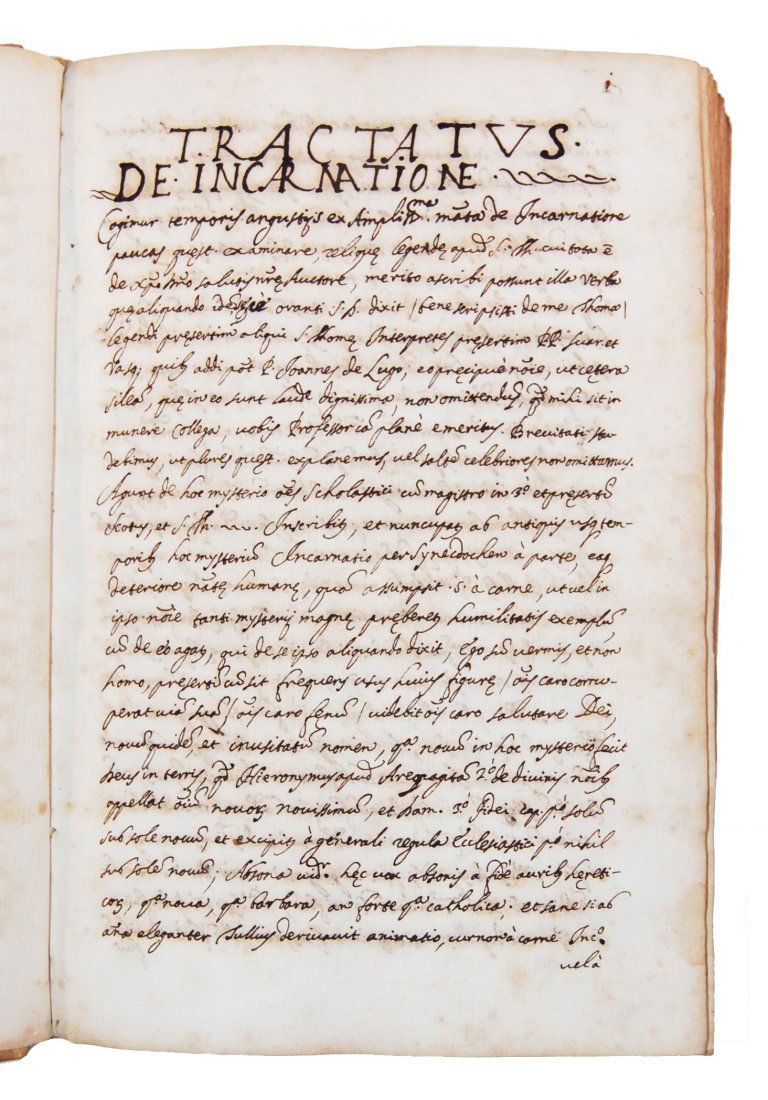 TRACTATVS.
DE. INCARNATIONE.
Cogimur temporis angustijs ex Ampliss.ma mãta de Incarnatione
paucas quęst. examinare, reliquę legendę apud S. Th. cui tota ẽ
de xpo ñro salutis nrę Auctore, merito ascribi possunt illa verba
quę aliquando oranti S. P. dixit / bene scripsisti de me Thoma /
legendi pręsertim aliqui S. Thomę Interpretes pręsertim PP. Suar. et
Vasq; quibꝫ addi põt P. Joannes de Lugo, eo pręcipuè nõie, ut cętera
sileã, quę in eo sunt laude dignissima, non omittendũ, qđ mihi sit in
munere Collega, vobis Professor iã planè emeritus. Brevitati stu
debimus, ut plures quęst. explanemus, vel saltẽ celebriores non omittamus.
Agunt de hoc mysterio oẽs Scholastici cũ magistro in 3º et pręsertĩ
Scotus, et S. Th. Inscribitꝫ, et nuncupatꝫ ab antiquis usqꝫ tem-
poribꝫ hoc mysteriũ Incarnatio per synecdochen à parte, eaqꝫ
deteriore natę humanę, quã assumpsit .s. à carne, ut vel in
ipso nõie tanti mysterij magnę pręberetꝫ humilitatis exemplũ
cũ de eo agatꝫ, qui de se ipso aliquando dixit, Ego sũ vermis, et non
homo, pręsertĩ cũ sit frequens usus huius figurę / oĩs caro corru-
perat viã suã / oĩs caro fęnũ / videbit oĩs caro salutare Dei,
novũ quidẽ, et inusitatũ nomen, qª novũ in hoc mysterio fecit
Deus in terris, qđ Hieronymus apud Areopagitã 2º de divinis nõibꝫ
appellat oĩũ novoꝝ novissimũ, et Dam. 3º fidei cap. pº solũ
sub sole novũ, et excipitꝫ à generali regula Ecclesiastici pº nihil
sub sole novũ; Absona vidr. hęc vox absonis à fide auribꝫ hęreti-
coꝝ, qª nova, qª barbara, an forte qª catholica; et sane si ab
aña eleganter Tullius derivavit animatio, cur non à carne Inc.º
vel à